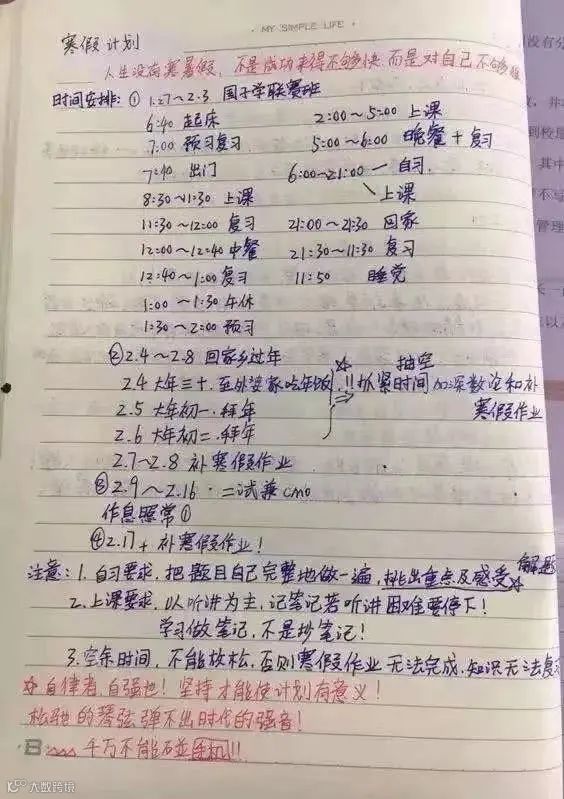 · MY SIMPLE LIFE ·
寒假计划
人生没有寒暑假,不是成功来得不够快,而是对自己不够狠
时间安排: ① 1.27~2.3 国子学联赛班
6:40 起床 2:00~5:00 上课
7:00 预习复习 5:00~6:00 晚餐+复习
7:40 出门 6:00~21:00 — 自习.
8:30~11:30 上课 上课
11:30~12:00 复习 21:00~21:30 回家
12:00~12:40 中餐 21:30~11:30 复习
12:40~1:00 复习 11:50 睡觉
1:00~1:30 午休
1:30~2:00 预习
② 2.4~2.8 回家乡过年
2.4 大年三十.至外婆家吃年饭 抽空
2.5 大年初一.拜年 !!抓紧时间 加深数论和补
2.6 大年初二.拜年 寒假作业
2.7~2.8 补寒假作业
③ 2.9~2.16 · 二试兼CMO
作息照常①
④ 2.17+ 补寒假作业!
注意: 1.自习要求,把题目自己完整地做一遍,挑出重点及感受 解题
2.上课要求,以听讲为主,记笔记若听讲困难要停下!
学习做笔记,不是抄笔记!
3.空余时间,不能放松,否则寒假作业无法完成,知识无法复
☆自律者,自强也!坚持才能使计划有意义!
松弛的琴弦弹不出时代的强音!
千万不能碰手机!!!
大数跨境
没有分
到校是
其中
不写
管理